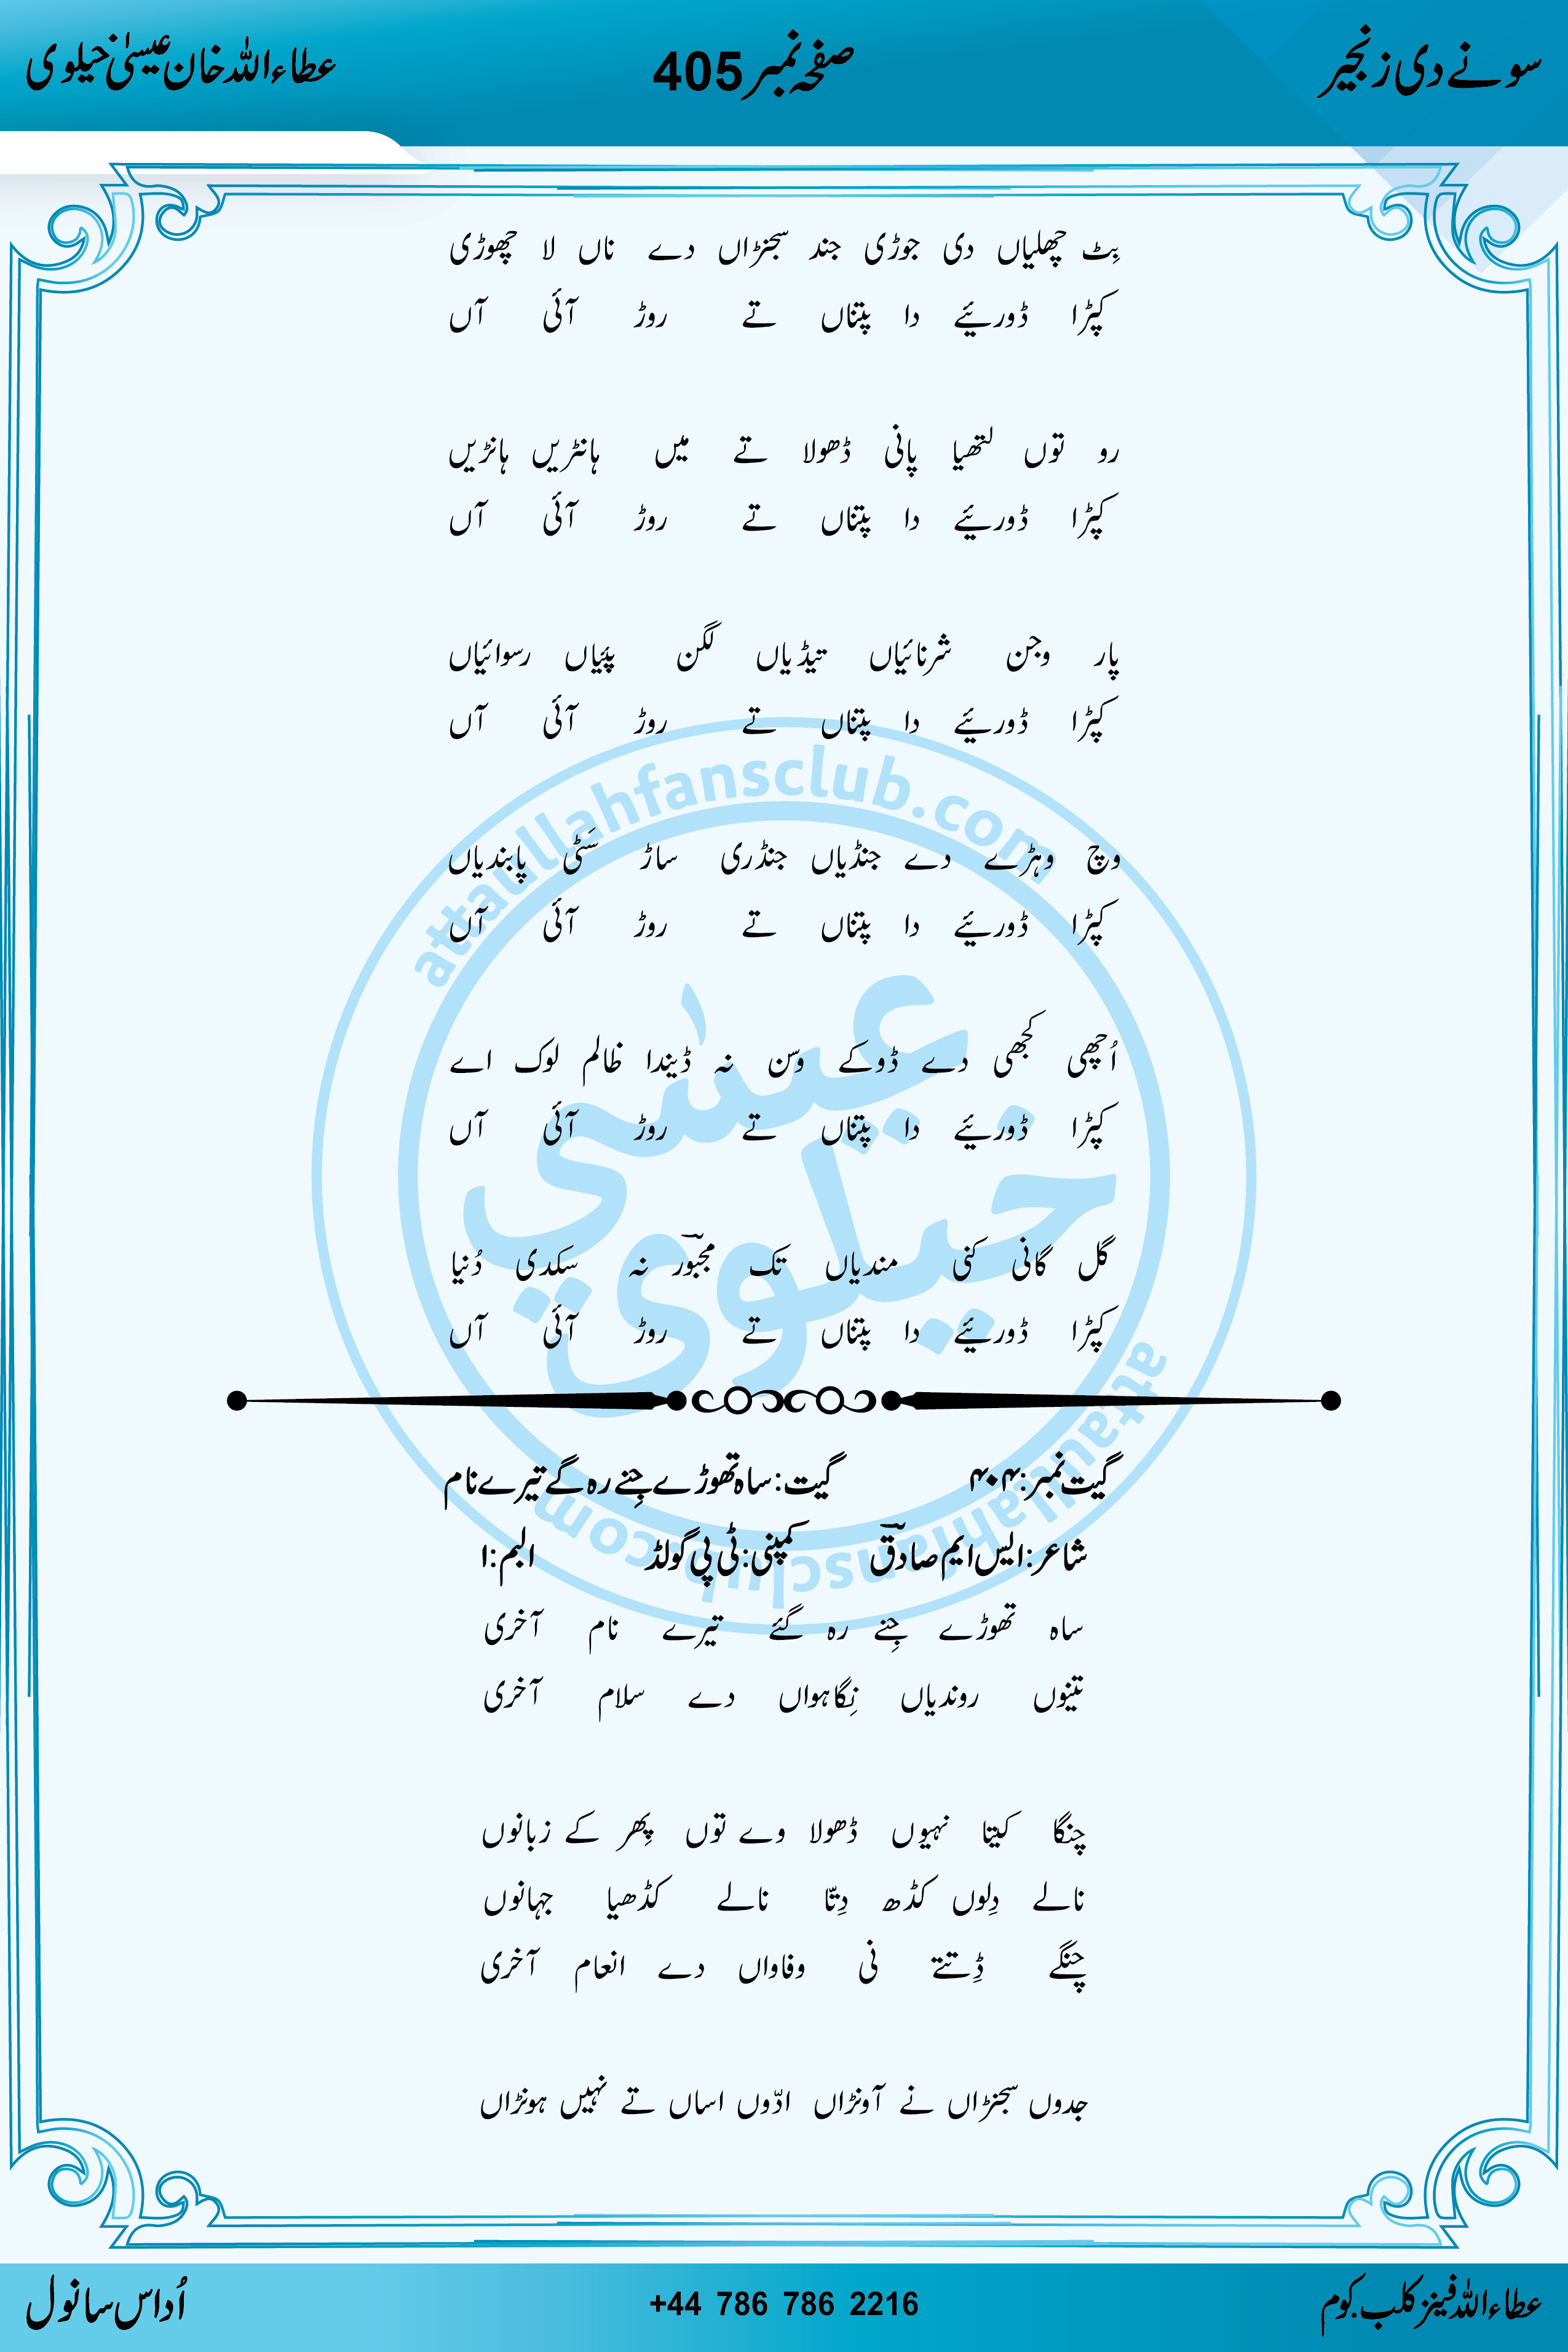 سونے دی زنجیر صفحہ نمبر 405 عطاءاللہ خان عیسیٰ خیلوی
بِٹ چھلیاں دی جوڑی جند سجنڑاں دے ناں لا چھوڑی
کپڑا ڈوریئے دا پتناں تے روڑ آئی آں
رو توں لتھیا پانی ڈھولا تے میں ہانٹریں ہانڑیں
کپڑا ڈوریئے دا پتناں تے روڑ آئی آں
پار وجن شرنائیاں تیڈیاں لگن پئیاں رسوائیاں
کپڑا ڈوریئے دا پتناں تے روڑ آئی آں
وچ وہڑے دے جنڈیاں جنڈری ساڑ سَٹی پابندیاں
کپڑا ڈوریئے دا پتناں تے روڑ آئی آں
اُچھی کجھی دے ڈوکے وسن نہ ڈیندا ظالم لوک اے
کپڑا ڈوریئے دا پتناں تے روڑ آئی آں
گل گانی کنی مندیاں تک مجبورؔ نہ سکدی دُنیا
کپڑا ڈوریئے دا پتناں تے روڑ آئی آں
گیت نمبر: ۴۰۴ گیت: ساہ تھوڑے جِنے رہ گے تیرے نام
شاعر: ایس ایم صادقؔ کمپنی: ٹی پی گولڈ البم: ۱
ساہ تھوڑے جِنے رہ گئے تیرے نام آخری
تینوں روندیاں نِگاہواں دے سلام آخری
چنگا کیتا نہیوں ڈھولا وے توں پِھر کے زبانوں
نالے دِلوں کڈھ دِتّا نالے کڈھیا جہانوں
چنگے ڈِتتے نی وفاواں دے انعام آخری
جدوں سجنڑاں نے آونڑاں ادّوں اساں تے نہیں ہونڑاں
attaullahfansclub.com
عیسٰی
خیلوی
attaullahfansclub.com
عطاءاللہ فینز کلب.کوم +44 786 786 2216 اُداس سانول